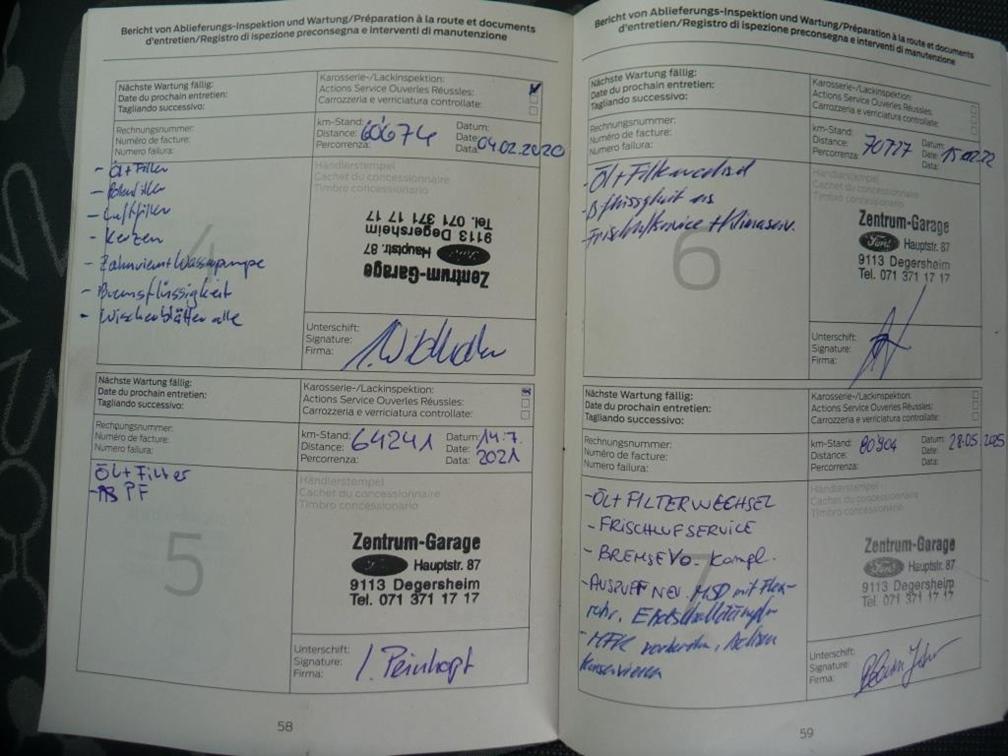 Bericht von Ablieferungs-Inspektion und Wartung/Préparation à la route et documents
d'entretien/Registro di ispezione preconsegna e interventi di manutenzione
Nächste Wartung fällig:
Date du prochain entretien:
Tagliando successivo:
Karosserie-/Lackinspektion:
Actions Service Ouveries Réussles:
Carrozzeria e verriciatura controllate:
Rechnungsnummer:
Numéro de facture:
Numero failura:
km-Stand:
Distance: 60674
Percorrenza:
Datum:
Date:
Data: 04.02.2020
- Öl+Filter
- Pollenfilter
- Luftfilter
- Kerzen
- Zahnriemen+Wasserpumpe
- Bremsflüssigkeit
- Wischerblätter alle
4
Händlerstempel
Cachet du concessionnaire
Timbro concessionario
Zentrum-Garage
Ford Hauptstr. 87
9113 Degersheim
Tel. 071 371 17 17
Unterschift:
Signature:
Firma:
Nächste Wartung fällig:
Date du prochain entretien:
Tagliando successivo:
Karosserie-/Lackinspektion:
Actions Service Ouveries Réussles:
Carrozzeria e verriciatura controllate:
Rechnungsnummer:
Numéro de facture:
Numero failura:
km-Stand:
Distance: 64241
Percorrenza:
Datum: 14.7.
Date:
Data: 2021
Öl+Filter
PF
5
Händlerstempel
Cachet du concessionnaire
Timbro concessionario
Zentrum-Garage
Hauptstr. 87
9113 Degersheim
Tel. 071 371 17 17
Unterschift:
Signature:
Firma:
58
Bericht von Ablieferungs-Inspektion und Wartung/Préparation à la route et documents
d'entretien/Registro di ispezione preconsegna e interventi di manutenzione
Nächste Wartung fällig:
Date du prochain entretien:
Tagliando successivo:
Karosserie-/Lackinspektion:
Actions Service Ouveries Réussles:
Carrozzeria e verriciatura controllate:
Rechnungsnummer:
Numéro de facture:
Numero failura:
km-Stand:
Distance: 70777
Percorrenza:
Datum:
Date: 15.02.22
Data:
- Öl+Filterwechsel
- Bflüssigkeit
- Frischluftservice + Klimaserv.
6
Händlerstempel
Cachet du concessionnaire
Timbro concessionario
Zentrum-Garage
Ford Hauptstr. 87
9113 Degersheim
Tel. 071 371 17 17
Unterschift:
Signature:
Firma:
Nächste Wartung fällig:
Date du prochain entretien:
Tagliando successivo:
Karosserie-/Lackinspektion:
Actions Service Ouveries Réussles:
Carrozzeria e verriciatura controllate:
Rechnungsnummer:
Numéro de facture:
Numero failura:
km-Stand:
Distance: 80904
Percorrenza:
Datum:
Date: 28.05.2025
Data:
- ÖL+FILTERWECHSEL
- FRISCHLUFSERVICE
- BREMSE VO. Kompl.
- AUSPUFF NEU. MSD mit Flex-
rohr, Endschalldämpfer
- MFK vorbereiten, Achsen
konservieren
7
Händlerstempel
Cachet du concessionnaire
Timbro concessionario
Zentrum-Garage
Ford Hauptstr. 87
9113 Degersheim
Tel. 071 371 17 17
Unterschift:
Signature:
Firma:
59